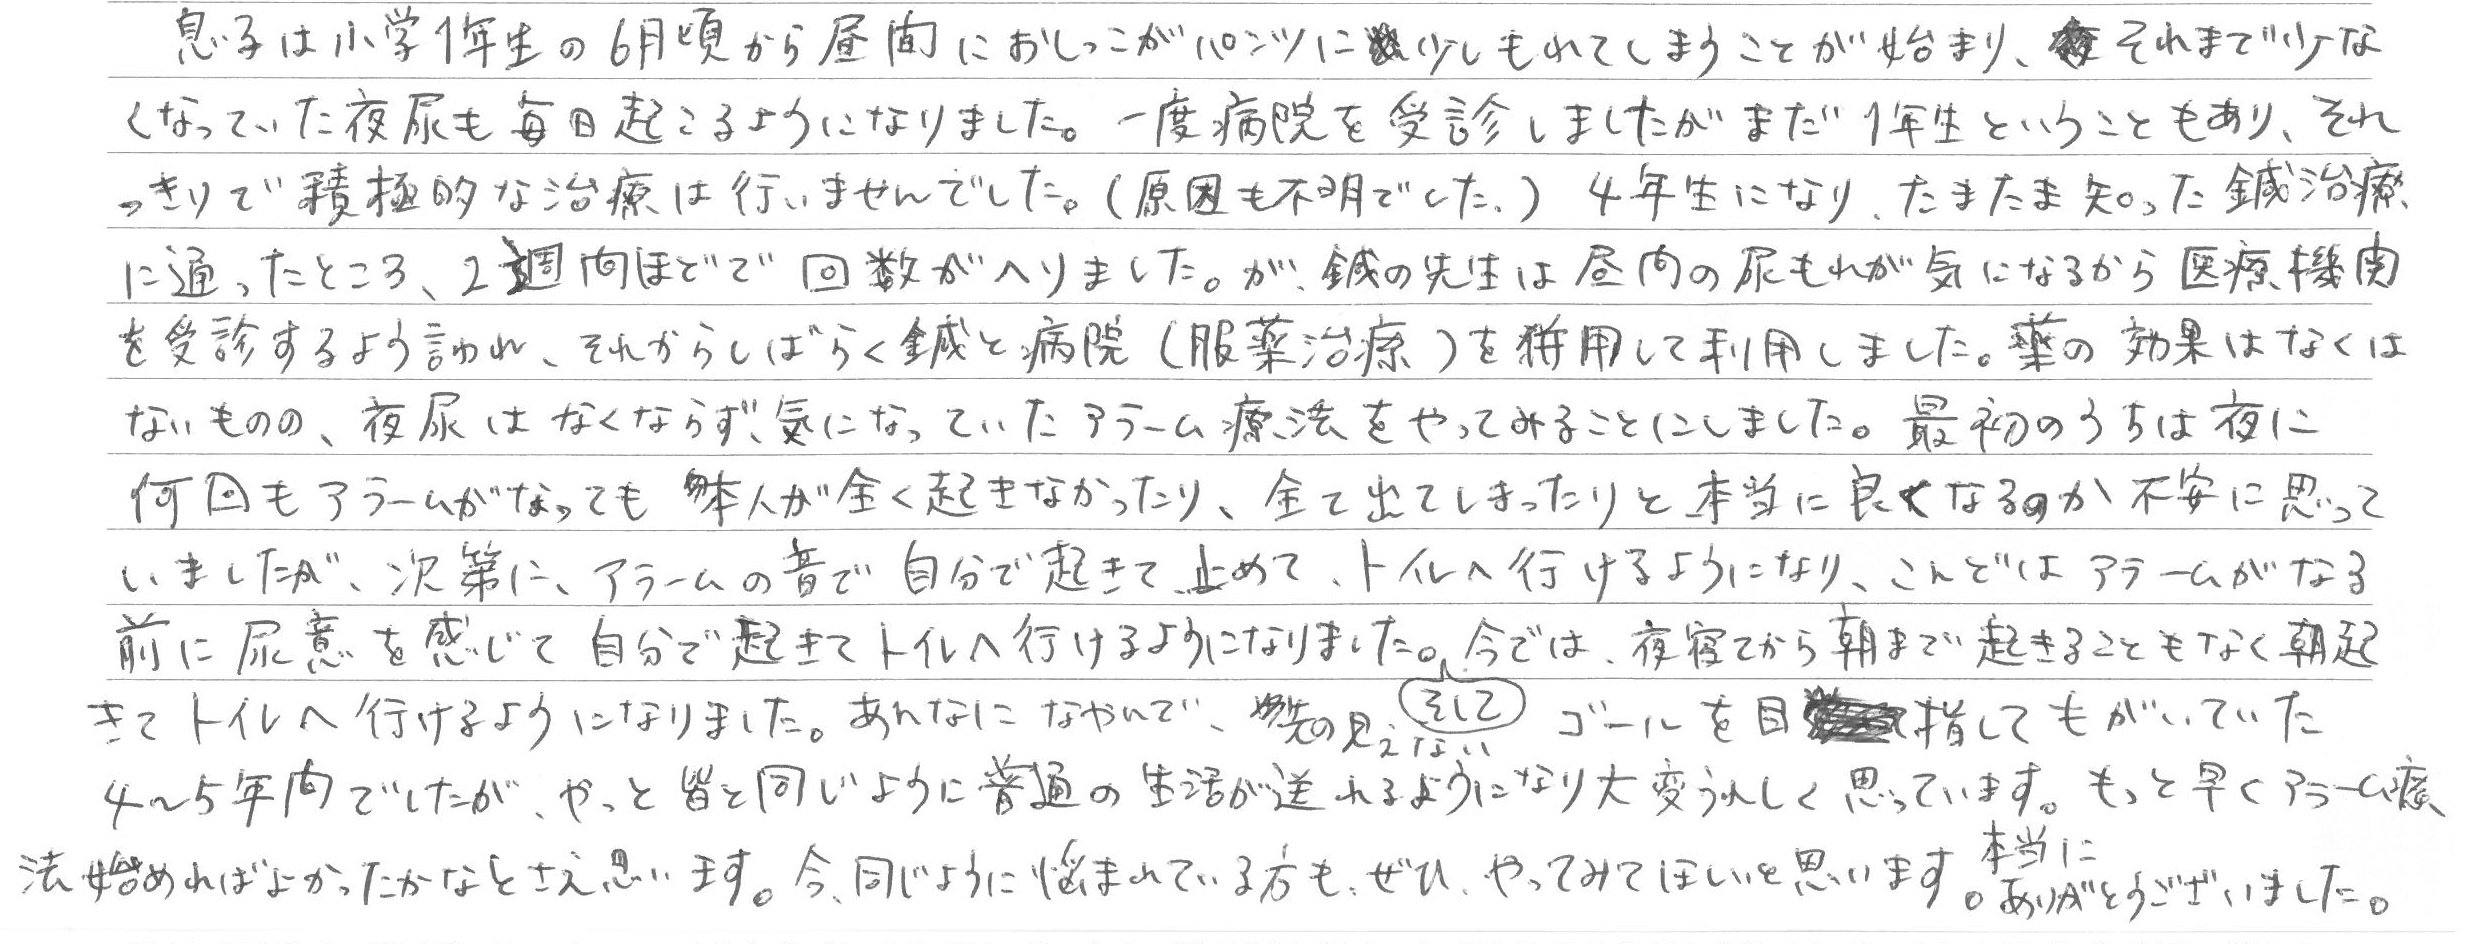 息子は小学1年生の6月頃から昼間におしっこがパンツに少しもれてしまうことが始まり、それまで少な
くなっていた夜尿も毎日起こるようになりました。一度病院を受診しましたがまだ1年生ということもあり、それ
っきりで積極的な治療は行いませんでした。(原因も不明でした。) 4年生になり、たまたま知った鍼治療
に通ったところ、2週間ほどで回数がへりました。が、鍼の先生は昼間の尿もれが気になるから医療機関
を受診するよう言われ、それからしばらく鍼と病院(服薬治療)を併用して利用しました。薬の効果はなくは
ないものの、夜尿はなくならず、気になっていたアラーム療法をやってみることにしました。最初のうちは夜に
何回もアラームがなっても本人が全く起きなかったり、全て出てしまったりと本当に良くなるのか不安に思って
いましたが、次第に、アラームの音で自分で起きて止めて、トイレへ行けるようになり、こんどはアラームがなる
前に尿意を感じて自分で起きてトイレへ行けるようになりました。そして今では、夜寝てから朝まで起きることもなく朝起
きてトイレへ行けるようになりました。あんなになやんで、先の見えないゴールを目指してもがいていた
4〜5年間でしたが、やっと皆と同じように普通の生活が送れるようになり大変うれしく思っています。もっと早くアラーム療
法始めればよかったかなとさえ思います。今、同じように悩まれている方も、ぜひ、やってみてほしいと思います。本当に
ありがとうございました。